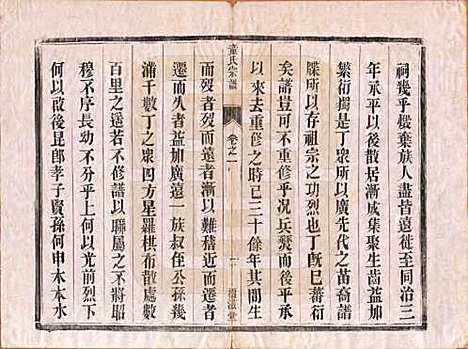 祠幾乎機棄族人盡皆遠徙至同治三
年承平以後散居漸成集聚生齒
繁衍場是丁眾所以廣先代之苗裔譜
牒所以存祖宗之功烈也丁既蕃衍
矣譜豈可不重修乎況兵燹而後平承
以來去重修之時已三十餘年其間生
而歿者歿而遠者漸以難稽近而遷者
童氏宗譜
卷之一
二
遷而久者益加廣遠一族叔侄公孫幾
滿千數丁之眾四方星羅棋布散處數
百里之遥若不修譜以聯屬之不將昭
穆不序長幼不分乎上何以光前烈下
何以啟後昆郎孝子賢孫何申木本水